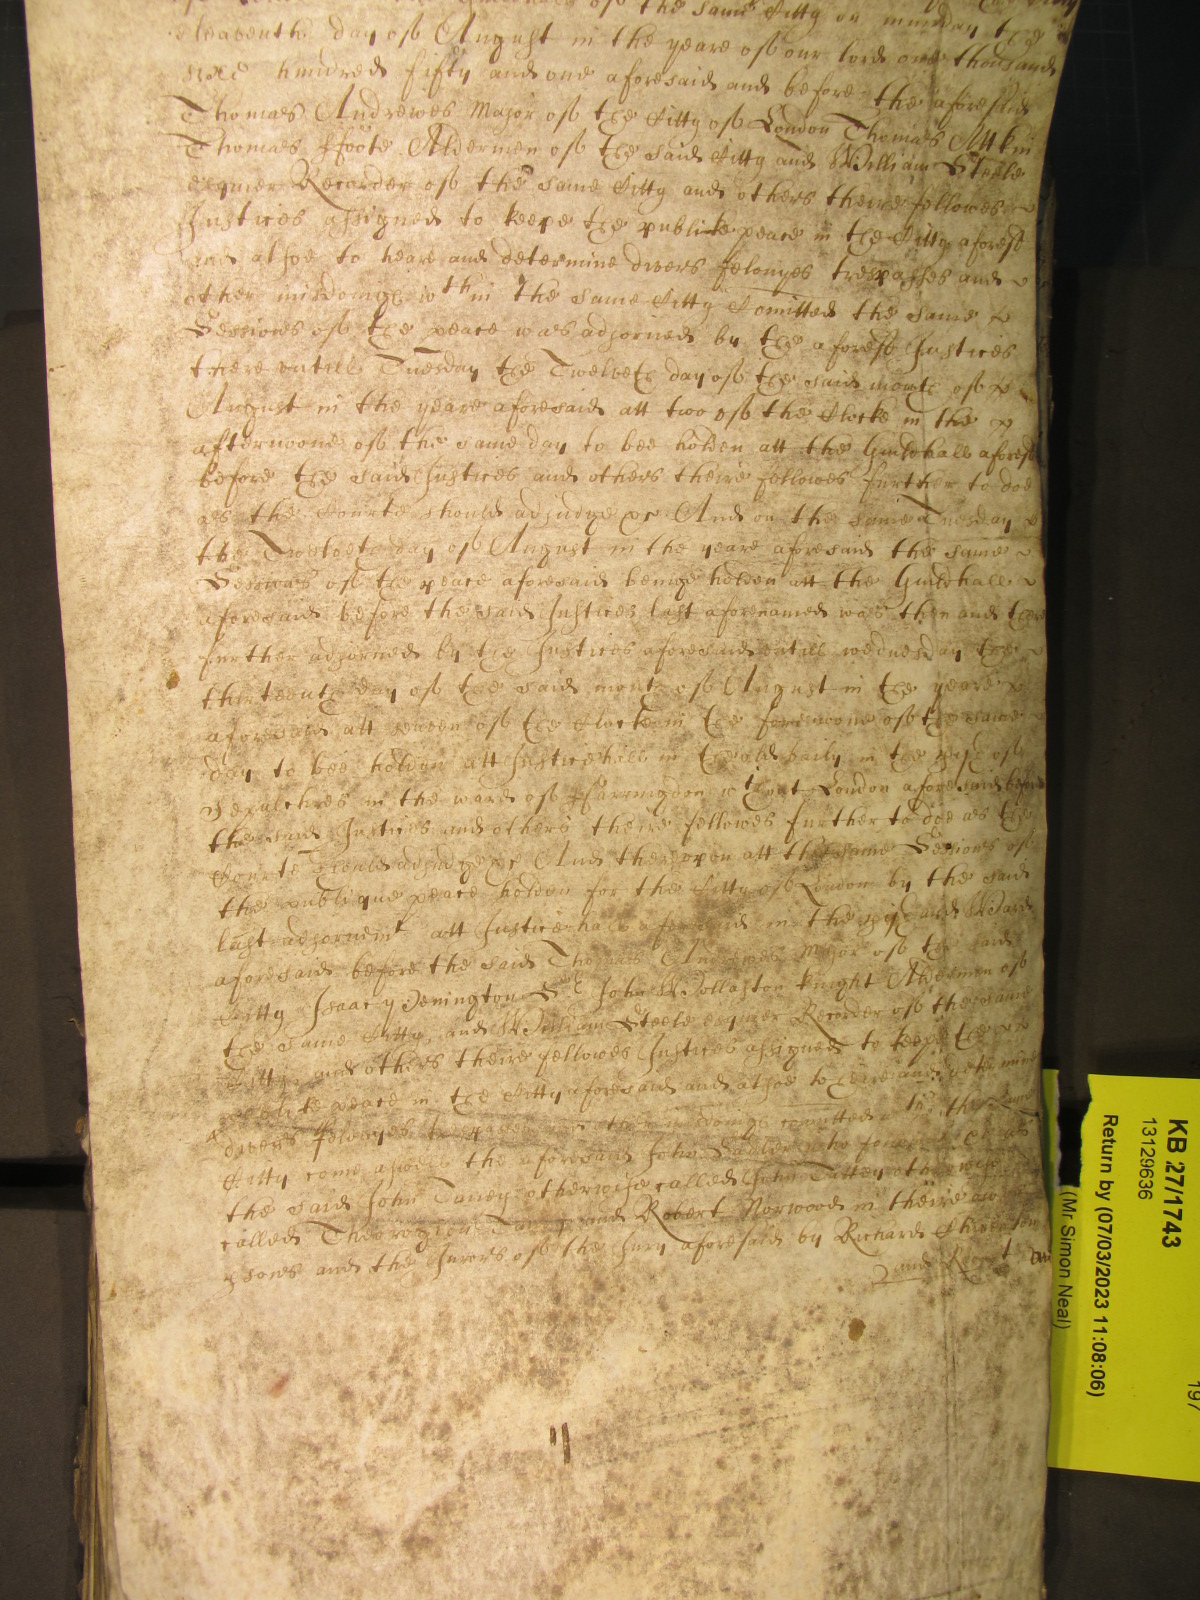 of the same Citty on munday the
eleaventh day of August in the yeare of our lord one thousand
sixe hundred fifty and one aforesaid and before the aforesaid
Thomas Andrewes Major of the Citty of London Thomas Attkin
Thomas Ffoote Aldermen of the said Citty and William Steele
esquier Recorder of the same Citty and others theire fellowes
Justices assigned to keepe the publike peace in the Citty aforesd
and alsoe to heare and determine divers felonyes trespasses and
other misdomgs wthin the same Citty Comitted the same
Sessions of the peace was adjorned by the aforesd Justices
there untill Tuesday the Twelveth day of the said month of
August in the yeare aforesaid att two of the Clocke in the
afternoone of the same day to bee holden att the Guildhall aforesd
before the said Justices and others theire fellowes further to doe
as the Courte should adjudge &c And on the same Tuesday
the Twelveth day of August in the yeare aforesaid the same
Sessions of the peace aforesaid beinge holden att the Guildhall
aforesaid before the said Justices last aforenamed was then and there
further adjorned by the Justices aforesaid untill wednesday the
thirteenth day of the said month of August in the yeare
aforesaid att seaven of the Clocke in the forenoone of the same
day to bee holden att Justicehall in the old baily in the pish of
Sepulchres in the ward of Farringdon wthout London aforesaid before
the said Justices and others theire fellowes further to doe as the
Courte should adjudge &c And thereupon att the same Sessions of
the publique peace holden for the Citty of London by the said
last adjornemt att Justicehall aforesaid in the pish and Ward
aforesaid before the said Thomas Andrewes Major of the said
Citty Isaac Penington Sr John Wollaston knight Aldermen of
the same Citty and William Steele esquier Recorder of the same
Citty and others theire fellowes Justices assigned to keepe the
publike peace in the Citty aforesaid and alsoe to heare and determine
divers Felonyes trespasses and other misdoings comitted wthin the same
Citty come aswell the aforesaid John Sadler who as
the said John Taney otherwise called John Tattey otherwise
called Theoraujohn Tany and Robert Norwood in theire owne
psons and the Jurors of the Jury aforesaid by Richard
and
KB 27/1743
13129636
Return by (07/03/2023 11:08:06)
(Mr Simon Neal)
197